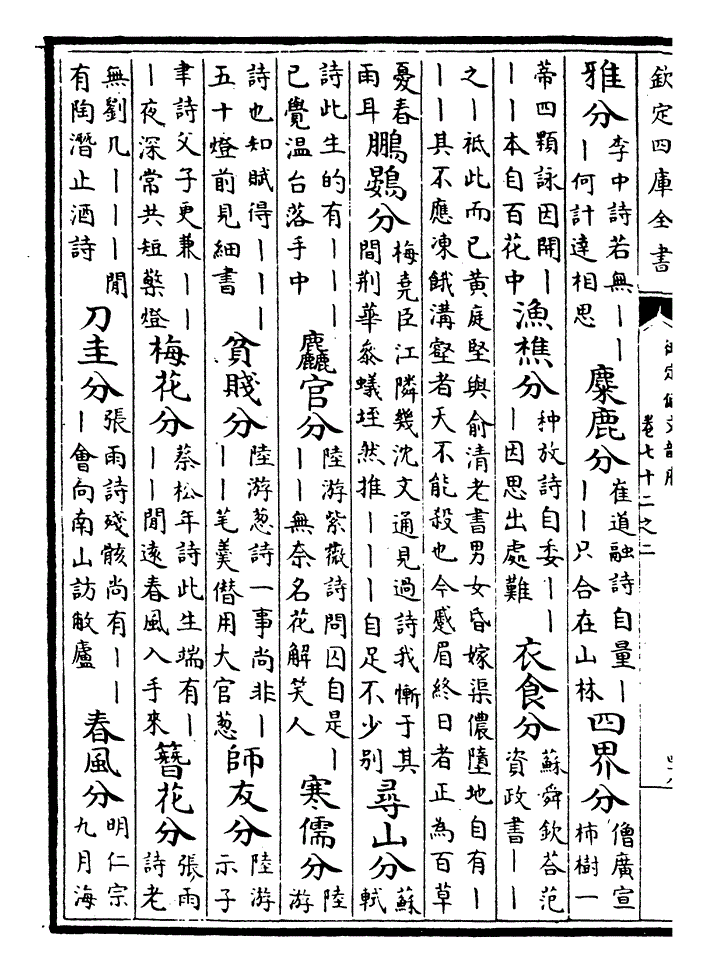 欽定四庫全書
卷七十二之二
雅分 李中詩若無丨丨丨何計達相思 麋鹿分 崔道融詩自量丨丨丨只合在山林 四界分 僧廣宣柿樹一
蒂四顆詠因開丨丨丨本自百花中 漁樵分 种放詩自委丨丨丨因思出處難 衣食分 蘇舜欽荅范資政書丨丨
之丨祗此而已黄庭堅與俞清老書男女昏嫁渠儂墮地自有丨丨丨其不應凍餓溝壑者天不能殺也今蹙眉終日者正為百草
憂春雨耳 鵬鷃分 梅堯臣江隣幾沈文通見過詩我慚于其間荆華叅蟻垤然推丨丨丨自足不少别 尋山分 蘇軾
詩此生的有丨丨丨已覺温台落手中 麤官分 陸游紫薇詩問囚自是丨丨丨無奈名花解笑人 寒儒分 陸游
詩也知賦得丨丨丨五十燈前見細書 貧賤分 陸游葱詩一事尚非丨丨丨笔羹僭用大官葱 師友分 陸游示子
聿詩父子更兼丨丨丨夜深常共短檠燈 梅花分 蔡松年詩此生端有丨丨丨聞逺春風入手來 簪花分 張雨詩老
無劉几丨丨丨聞有陶潛止酒詩 刀圭分 張雨詩殘骸尚有丨丨丨會向南山訪敏廬 春風分 明仁宗九月海